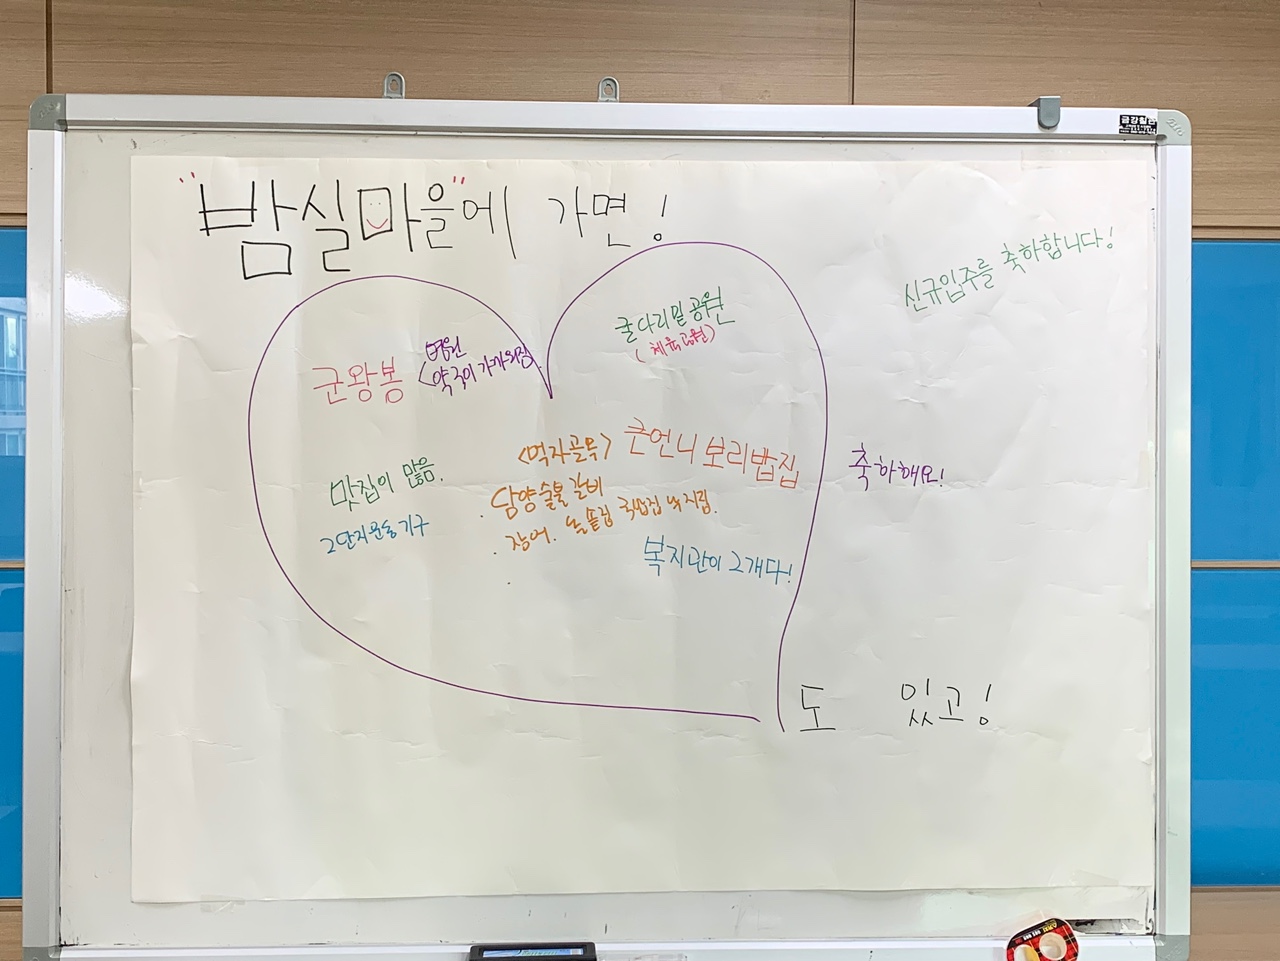 "밤실마을"에 가면!
신규입주를 축하합니다!
굴다리밑공원
(체육공원)
군왕봉
병원
<약국이 가까워짐.
큰언니 보리밥집
<먹자골목>
맛집이 많음.
· 담양숯불갈비
2단지운동기구
· 장어. 돌솥집 국밥집 낙지림.
축하해요!
복지관이 2개다!
도 있고!
금강칠판